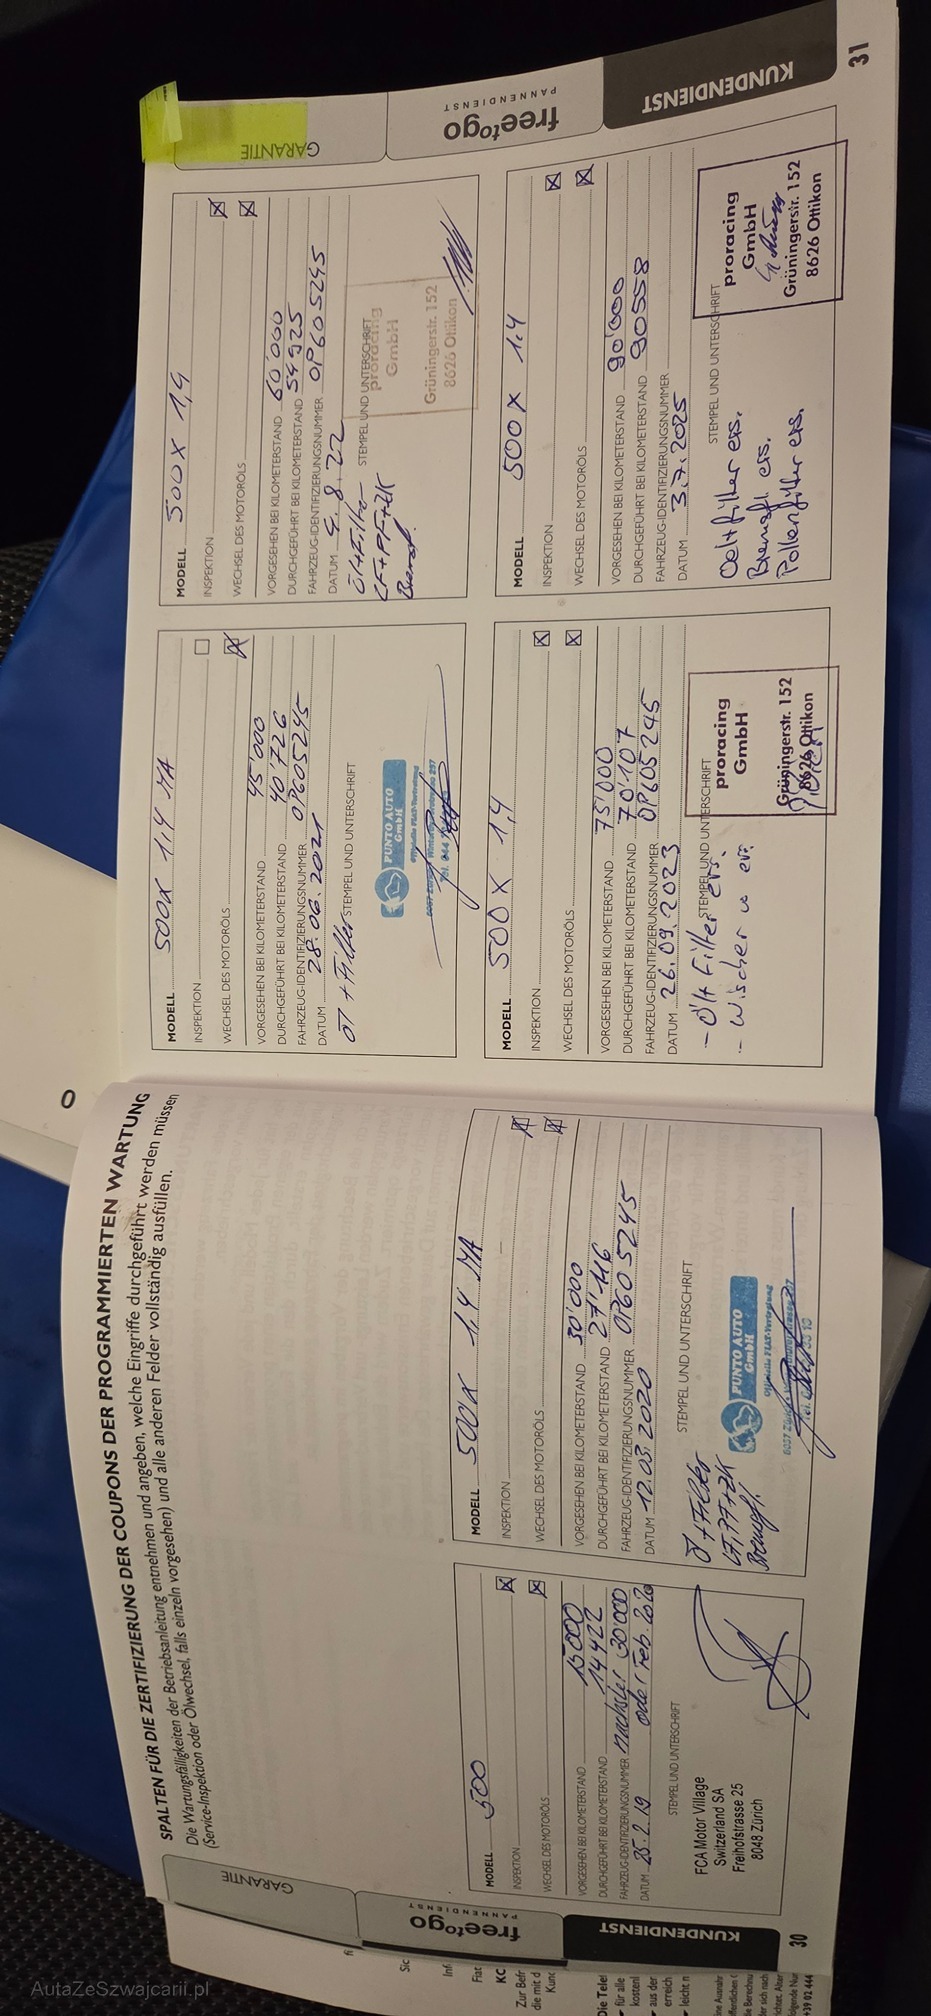 SPALTEN FÜR DIE ZERTIFIZIERUNG DER COUPONS DER PROGRAMMIERTEN WARTUNG
Die Wartungsfälligkeiten der Betriebsanleitung entnehmen und angeben, welche Eingriffe durchgeführt werden müssen
(Service-Inspektion oder Ölwechsel, falls einzeln vorgesehen) und alle anderen Felder vollständig ausfüllen.
GARANTIE
freetogo
PANNENDIENST
KUNDENDIENST
30
MODELL 500
INSPEKTION
WECHSEL DES MOTORÖLS
VORGESEHEN BEI KILOMETERSTAND 15000
DURCHGEFÜHRT BEI KILOMETERSTAND 14422
FAHRZEUG-IDENTIFIZIERUNGSNUMMER nächster 30'000
DATUM 25.2.19 oder Feb. 2020
STEMPEL UND UNTERSCHRIFT
FCA Motor Village
Switzerland SA
Freihofstrasse 25
8048 Zürich
MODELL 500X 1,4 MA
INSPEKTION
WECHSEL DES MOTORÖLS
VORGESEHEN BEI KILOMETERSTAND 30'000
DURCHGEFÜHRT BEI KILOMETERSTAND 27'116
FAHRZEUG-IDENTIFIZIERUNGSNUMMER 0P605245
DATUM 12.03.2020
STEMPEL UND UNTERSCHRIFT
Ö + Filter
Bremsfl.
PUNTO AUTO
GmbH
offizielle FIAT-Vertretung
MODELL 500X 1,4 MA
INSPEKTION
WECHSEL DES MOTORÖLS
VORGESEHEN BEI KILOMETERSTAND 45'000
DURCHGEFÜHRT BEI KILOMETERSTAND 40'726
FAHRZEUG-IDENTIFIZIERUNGSNUMMER 0P605245
DATUM 28.06.2021
Öl + Filter STEMPEL UND UNTERSCHRIFT
PUNTO AUTO
GmbH
offizielle FIAT-Vertretung
MODELL 500X 1,4
INSPEKTION
WECHSEL DES MOTORÖLS
VORGESEHEN BEI KILOMETERSTAND 60'000
DURCHGEFÜHRT BEI KILOMETERSTAND 54925
FAHRZEUG-IDENTIFIZIERUNGSNUMMER 0P605245
DATUM 4.8.22
Öl+Filter STEMPEL UND UNTERSCHRIFT
proracing
GmbH
Grüningerstr. 152
8626 Ottikon
MODELL 500X 1,4
INSPEKTION
WECHSEL DES MOTORÖLS
VORGESEHEN BEI KILOMETERSTAND 75'000
DURCHGEFÜHRT BEI KILOMETERSTAND 70'107
FAHRZEUG-IDENTIFIZIERUNGSNUMMER 0P605245
DATUM 26.09.2023
STEMPEL UND UNTERSCHRIFT
- Öl+Filter ers.
- Wischer
proracing
GmbH
Grüningerstr. 152
8626 Ottikon
MODELL 500X 1.4
INSPEKTION
WECHSEL DES MOTORÖLS
VORGESEHEN BEI KILOMETERSTAND 90'000
DURCHGEFÜHRT BEI KILOMETERSTAND 90558
FAHRZEUG-IDENTIFIZIERUNGSNUMMER
DATUM 3.7.2025
STEMPEL UND UNTERSCHRIFT
Oel+filter ers.
Bremsfl. ers.
Pollenfilter ers.
proracing
GmbH
Grüningerstr. 152
8626 Ottikon
GARANTIE
freetogo
PANNENDIENST
KUNDENDIENST
31
AutaZeSzwajcarii.pl